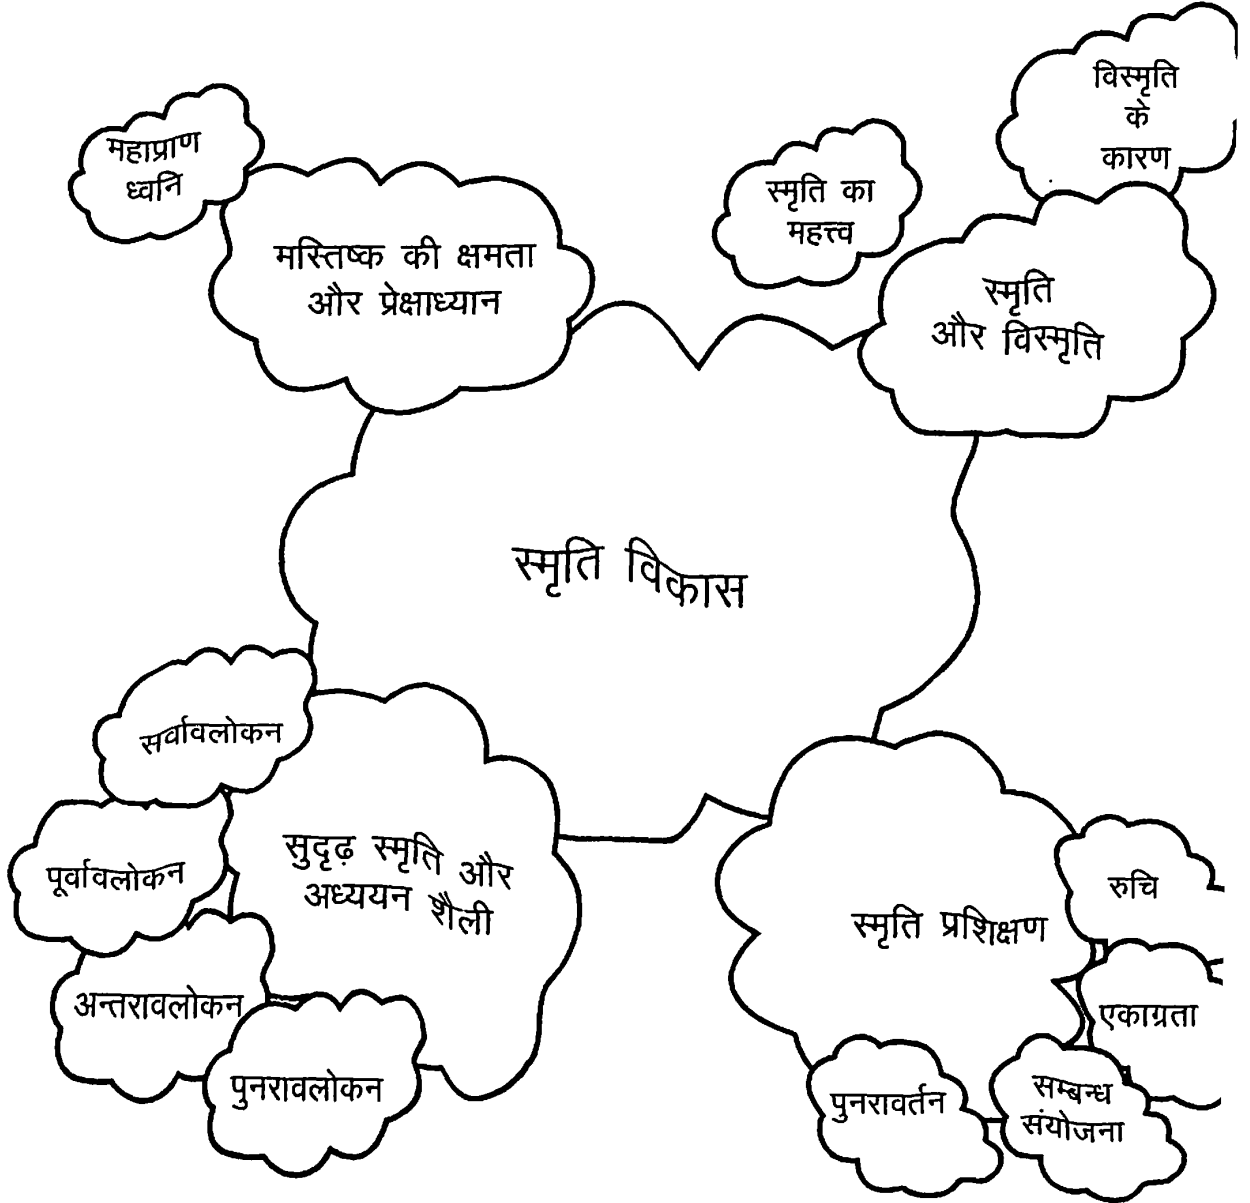 महाप्राण
ध्वनि
मस्तिष्क की क्षमता
और प्रेक्षाध्यान
स्मृति का
महत्त्व
विस्मृति
के
कारण
स्मृति
और विस्मृति
स्मृति विकास
सर्वावलोकन
पूर्वावलोकन
अन्तरावलोकन
पुनरावलोकन
सुदृढ़ स्मृति और
अध्ययन शैली
स्मृति प्रशिक्षण
रुचि
एकाग्रता
सम्बन्ध
संयोजना
पुनरावर्तन